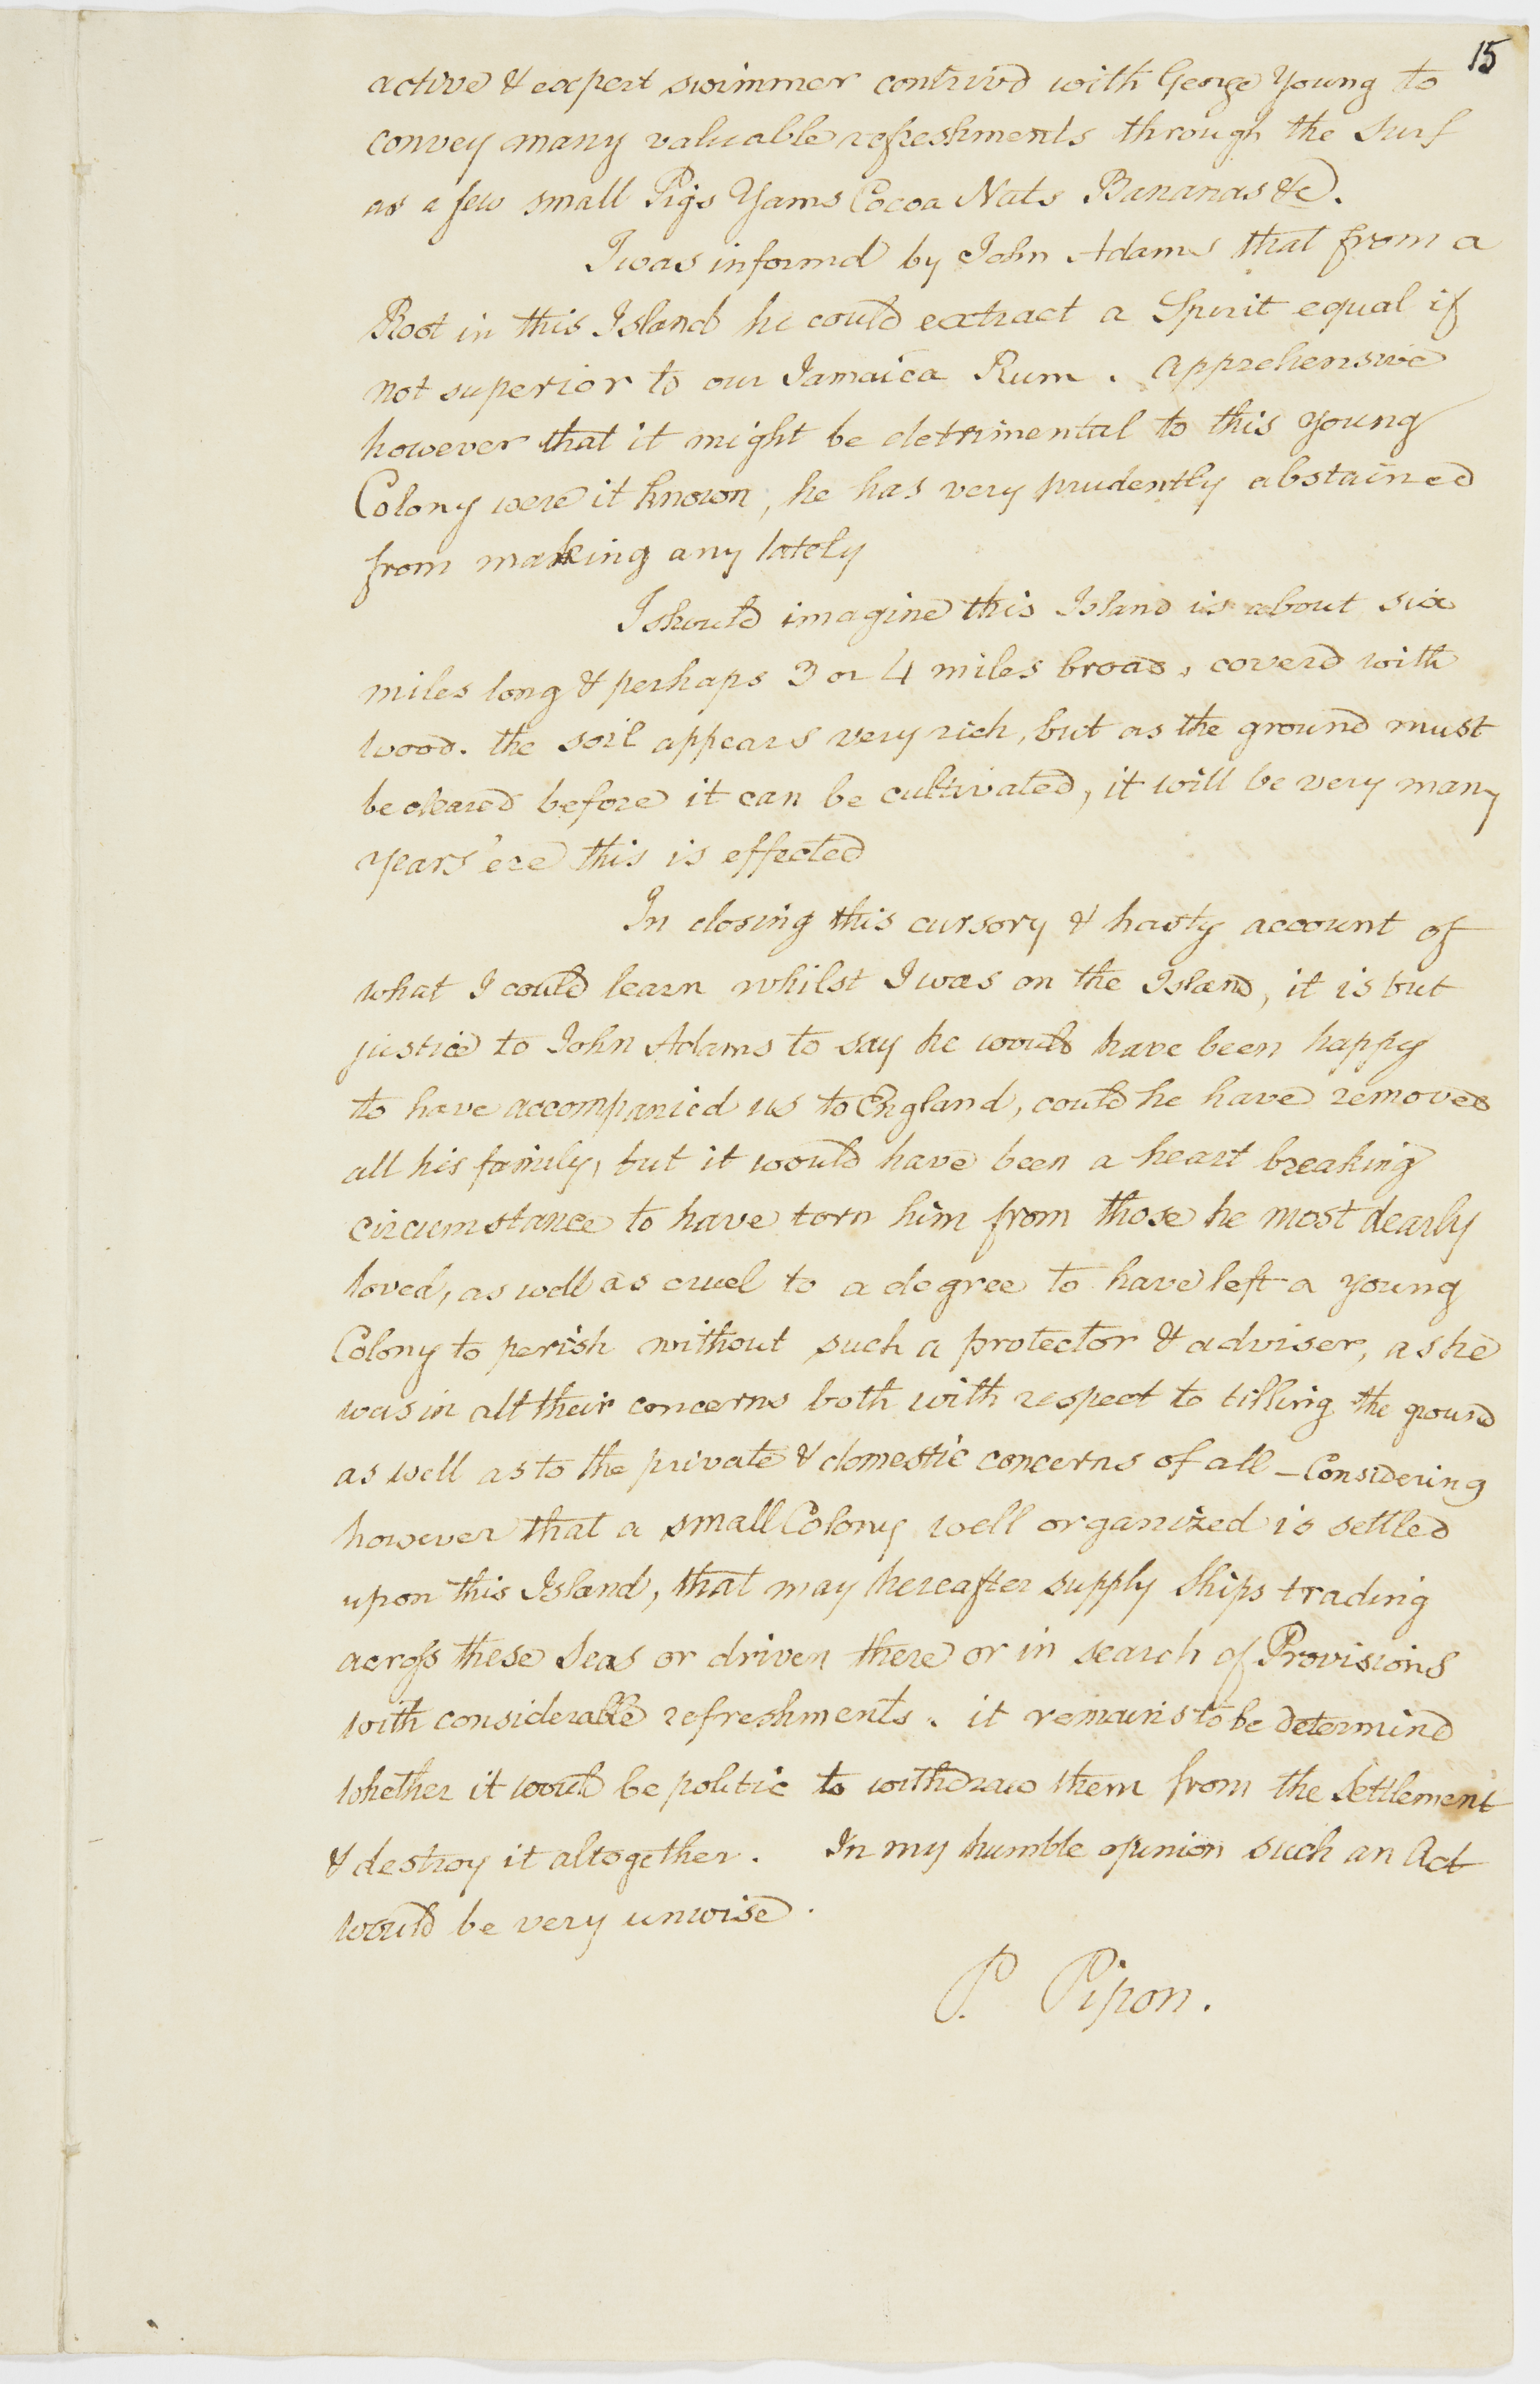 15
active & expert swimmer contrivd with George Young to
convey many valuable refreshments through the surf
as a few small Pigs Yams Cocoa Nuts Bananas &c.
I was informd by John Adams that from a
Root in this Island he could extract a Spirit equal if
not superior to our Jamaica Rum. Apprehensive
however that it might be detrimental to this young
Colony were it known, he has very prudently abstained
from making any lately
I should imagine this Island is about six
miles long & perhaps 3 or 4 miles broad, coverd with
wood. the soil appears very rich, but as the ground must
be cleared before it can be cultivated, it will be very many
years 'ere this is effected
In closing this cursory & hasty account of
what I could learn whilst I was on the Island, it is but
justice to John Adams to say he would have been happy
to have accompanied us to England, could he have removed
all his family, but it would have been a heart breaking
circumstance to have torn him from those he most dearly
loved, as well as cruel to a degree to have left a young
Colony to perish without such a protector & adviser, as he
was in all their concerns both with respect to tilling the ground
as well as to the private & domestic concerns of all – Considering
however that a small Colony well organized is settled
upon this Island, that may hereafter supply Ships trading
across these Seas or driven there or in search of Provisions
with considerable refreshments. it remains to be determind
whether it would be politic to withdraw them from the Settlement
& destroy it altogether. In my humble opinion such an Act
would be very unwise.
P. Pipon.